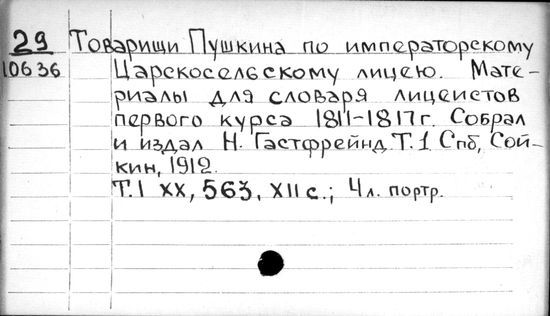 29 Товарищи Пушкина по императорскому
10636 Царскосельскому лицею. Мате-
риалы для словаря лицеистов
первого курса 1811-1817г. Собрал
и издал Н. Гастфрейнд. Т. 1 Спб, Сой-
кин, 1912.
Т. I XX, 563, XII с.; 4 л. портр.